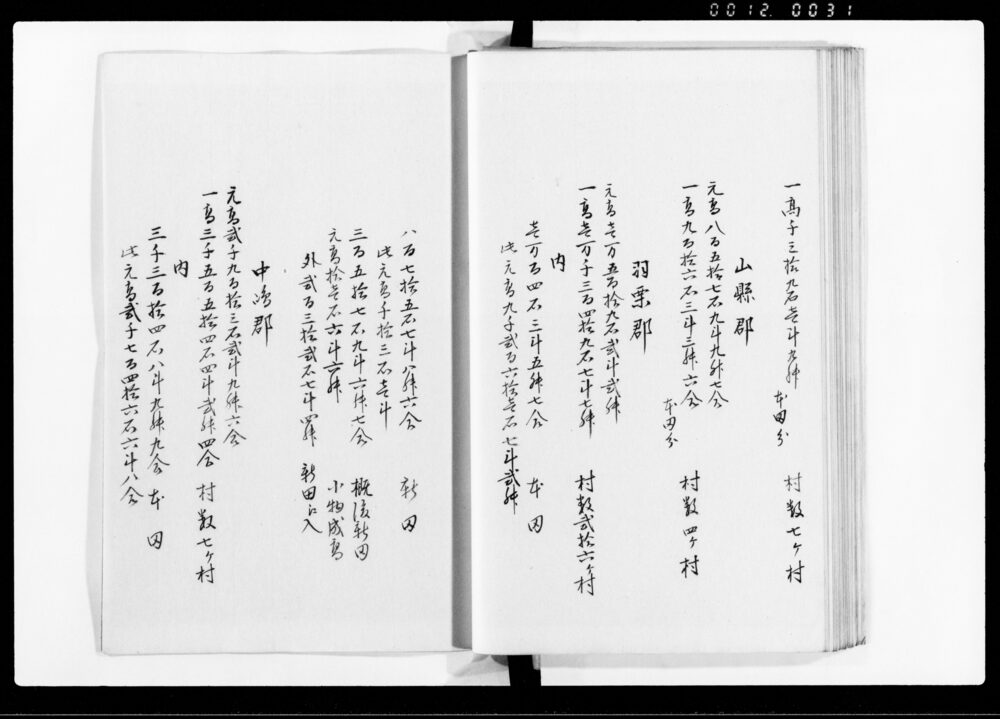 0012. 0031
一高千三拾九石壱斗九升 本田分 村数七ヶ村
山縣郡
元高八百五拾七石九斗九升七合
一高九百拾六石三斗三升六合 本田分 村数四ヶ村
羽栗郡
元高壱万五百拾九石弐斗弐升
一高壱万千三百四拾九石七斗七升 村数弐拾六ヶ村
内
壱万百四石三斗五升七合 本田
此元高九千弐百六拾壱石七斗弐升
八百七拾五石七斗八升六合 新田
此元高千拾三石壱斗
三百五拾七石九斗六升七合 概後新田
元高拾壱石六斗六升 小物成高
外弐百三拾弐石七斗四升 新田ニ入
中嶋郡
元高弐千九百拾三石弐斗九升六合
一高三千五百五拾四石四斗弐升四合 村数七ヶ村
内
三千三百拾四石八斗九升九合 本田
此元高弐千七百四拾六石六斗八合